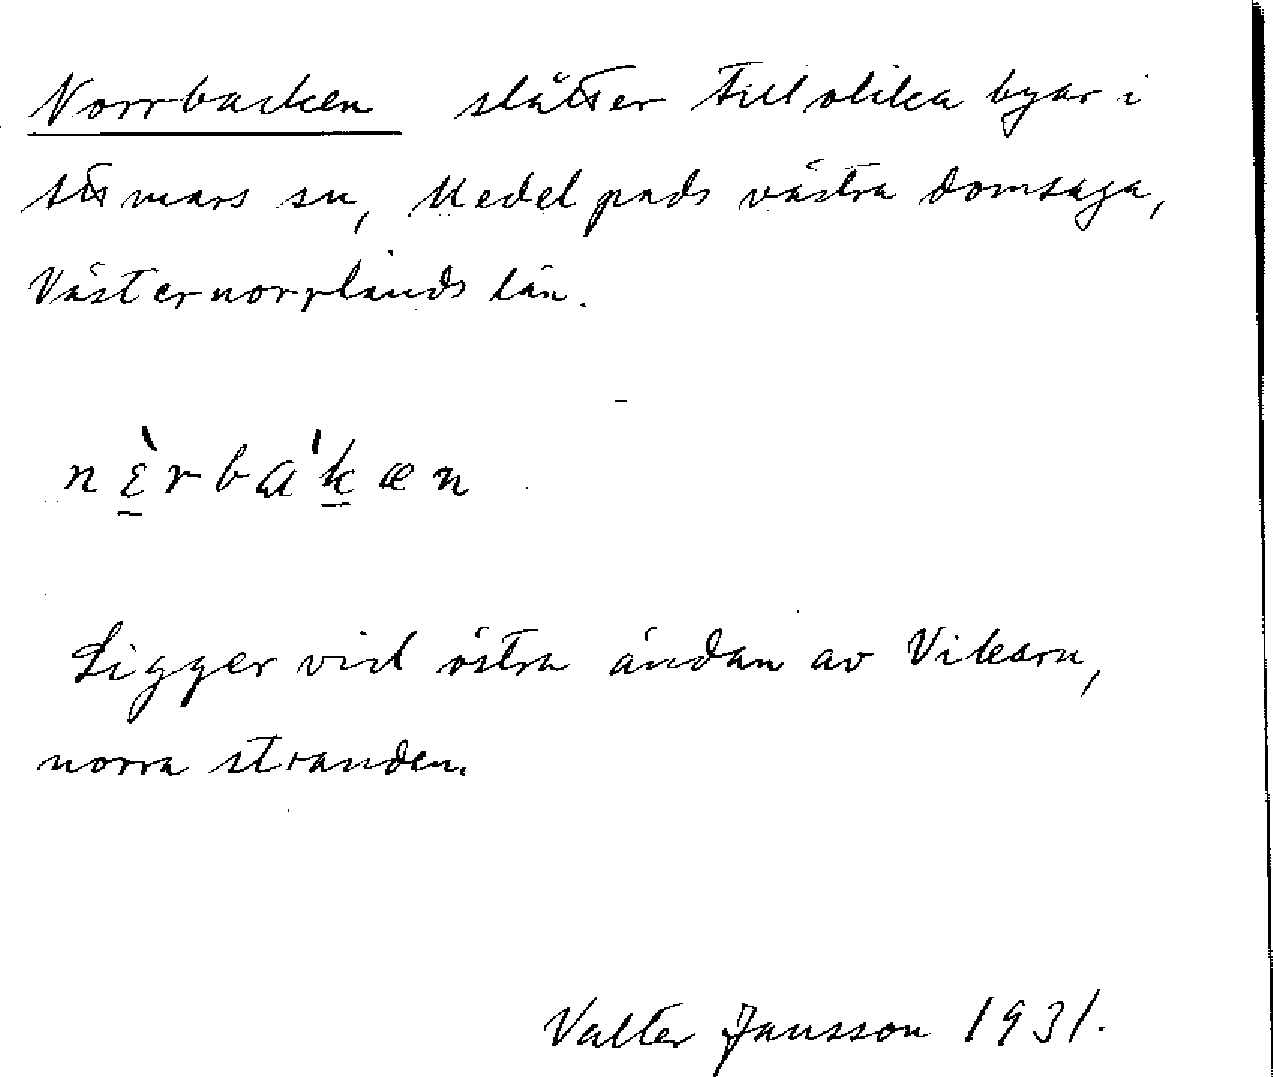 Norrbacken slåtter till olika byar i
Attmars sn, Medelpads västra domsaga,
Västernorrlands län.
nὲ̱rba'ḵæn
Ligger vid östra ändan av Vikarn,
norra stranden.
Valter Jansson 1931.